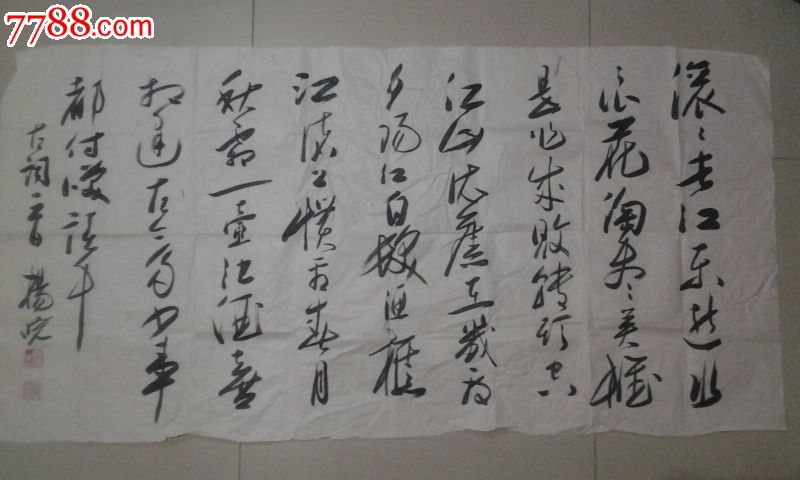 7788.com
滚滚长江东逝水
浪花淘尽英雄
是非成败转头空
江山依舊在幾度
夕阳红白髮渔樵
江渚上惯看春月
秋霜一壶浊酒喜
相逢古今多少事
都付笑谈中
古词一首